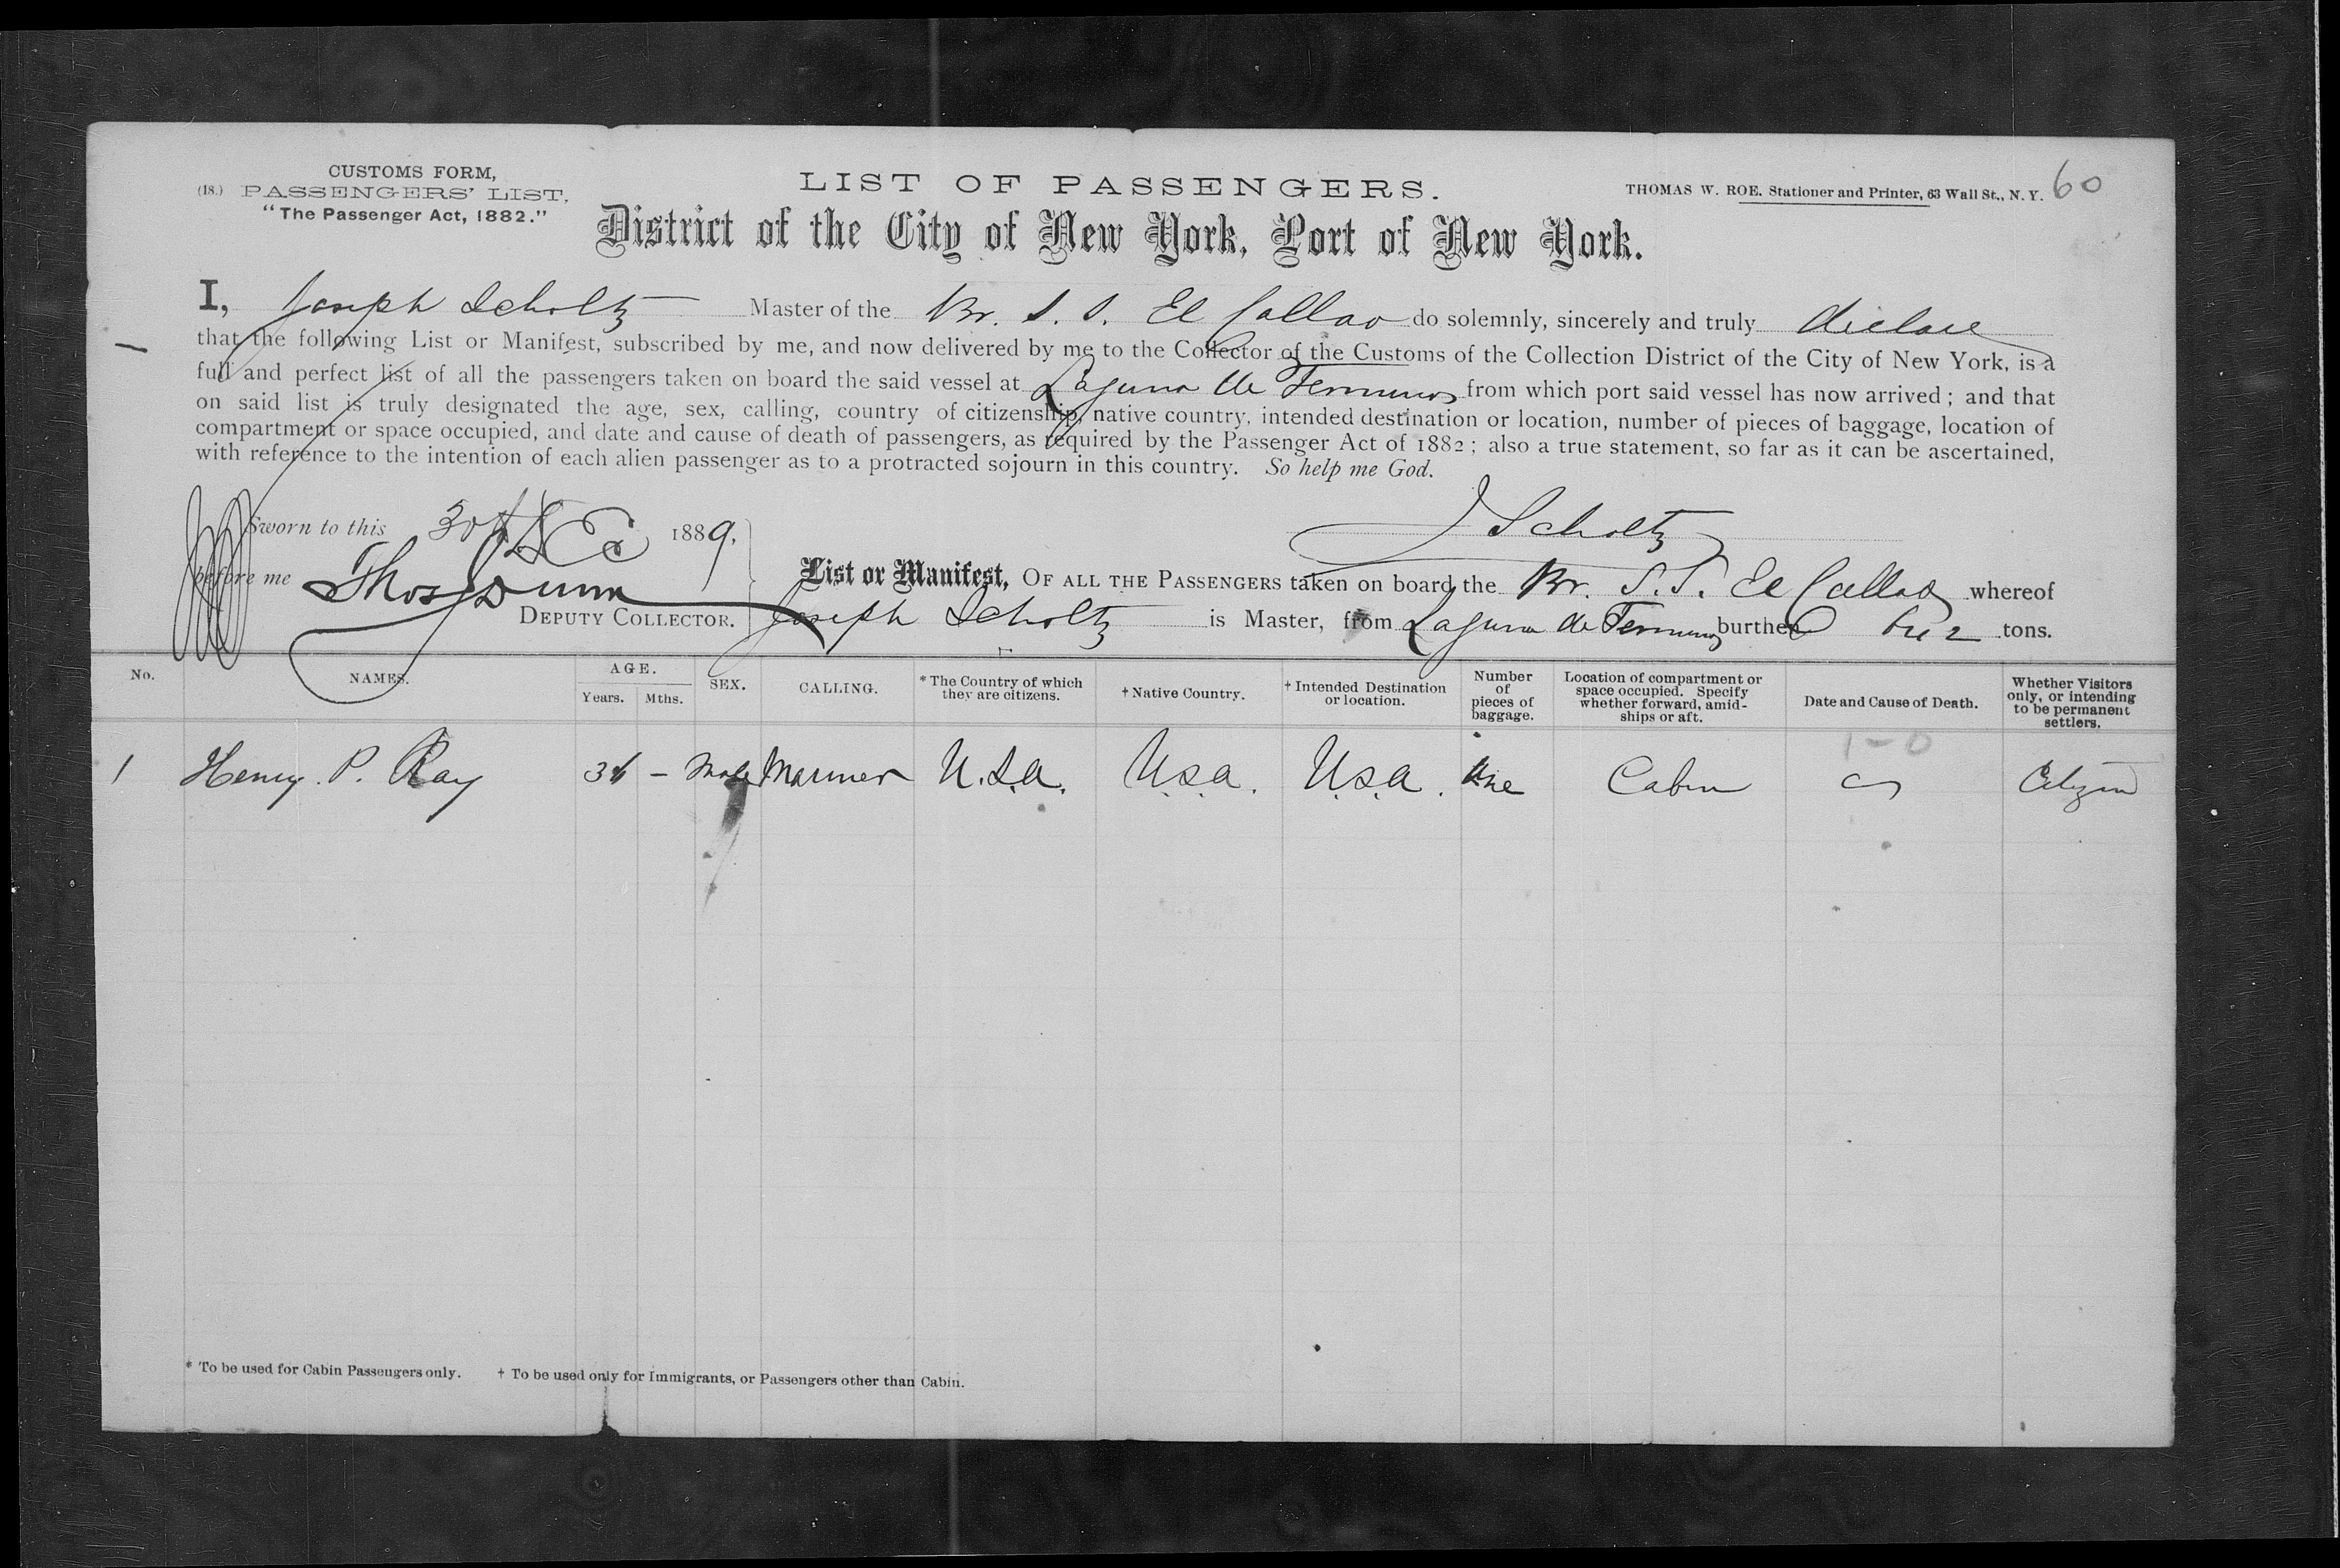 CUSTOMS FORM,
(18.) PASSENGERS' LIST,
"The Passenger Act, 1882."
LIST OF PASSENGERS.
THOMAS W. ROE. Stationer and Printer, 63 Wall St., N. Y. 60
District of the City of New York, Port of New York.
I, Joseph Scholtz Master of the Br. S. S. El Callao do solemnly, sincerely and truly declare
that the following List or Manifest, subscribed by me, and now delivered by me to the Collector of the Customs of the Collection District of the City of New York, is a
full and perfect list of all the passengers taken on board the said vessel at Laguna de Terminos from which port said vessel has now arrived; and that
on said list is truly designated the age, sex, calling, country of citizenship, native country, intended destination or location, number of pieces of baggage, location of
compartment or space occupied, and date and cause of death of passengers, as required by the Passenger Act of 1882; also a true statement, so far as it can be ascertained,
with reference to the intention of each alien passenger as to a protracted sojourn in this country. So help me God.
J Scholtz
Sworn to this 30th Dec 1889,
before me Thos Dunn
DEPUTY COLLECTOR.
List or Manifest, OF ALL THE PASSENGERS taken on board the Br. S. S. El Callao whereof
Joseph Scholtz is Master, from Laguna de Terminos burthen tons.
No. NAMES. AGE. Years. Mths. SEX. CALLING. * The Country of which they are citizens. † Native Country. † Intended Destination or location. Number of pieces of baggage. Location of compartment or space occupied. Specify whether forward, amidships or aft. Date and Cause of Death. Whether Visitors only, or intending to be permanent settlers.
1-0
1 Henry P. Ray — Male Mariner U.S.A. U.S.A. U.S.A. One Cabin Citizen
* To be used for Cabin Passengers only. † To be used only for Immigrants, or Passengers other than Cabin.